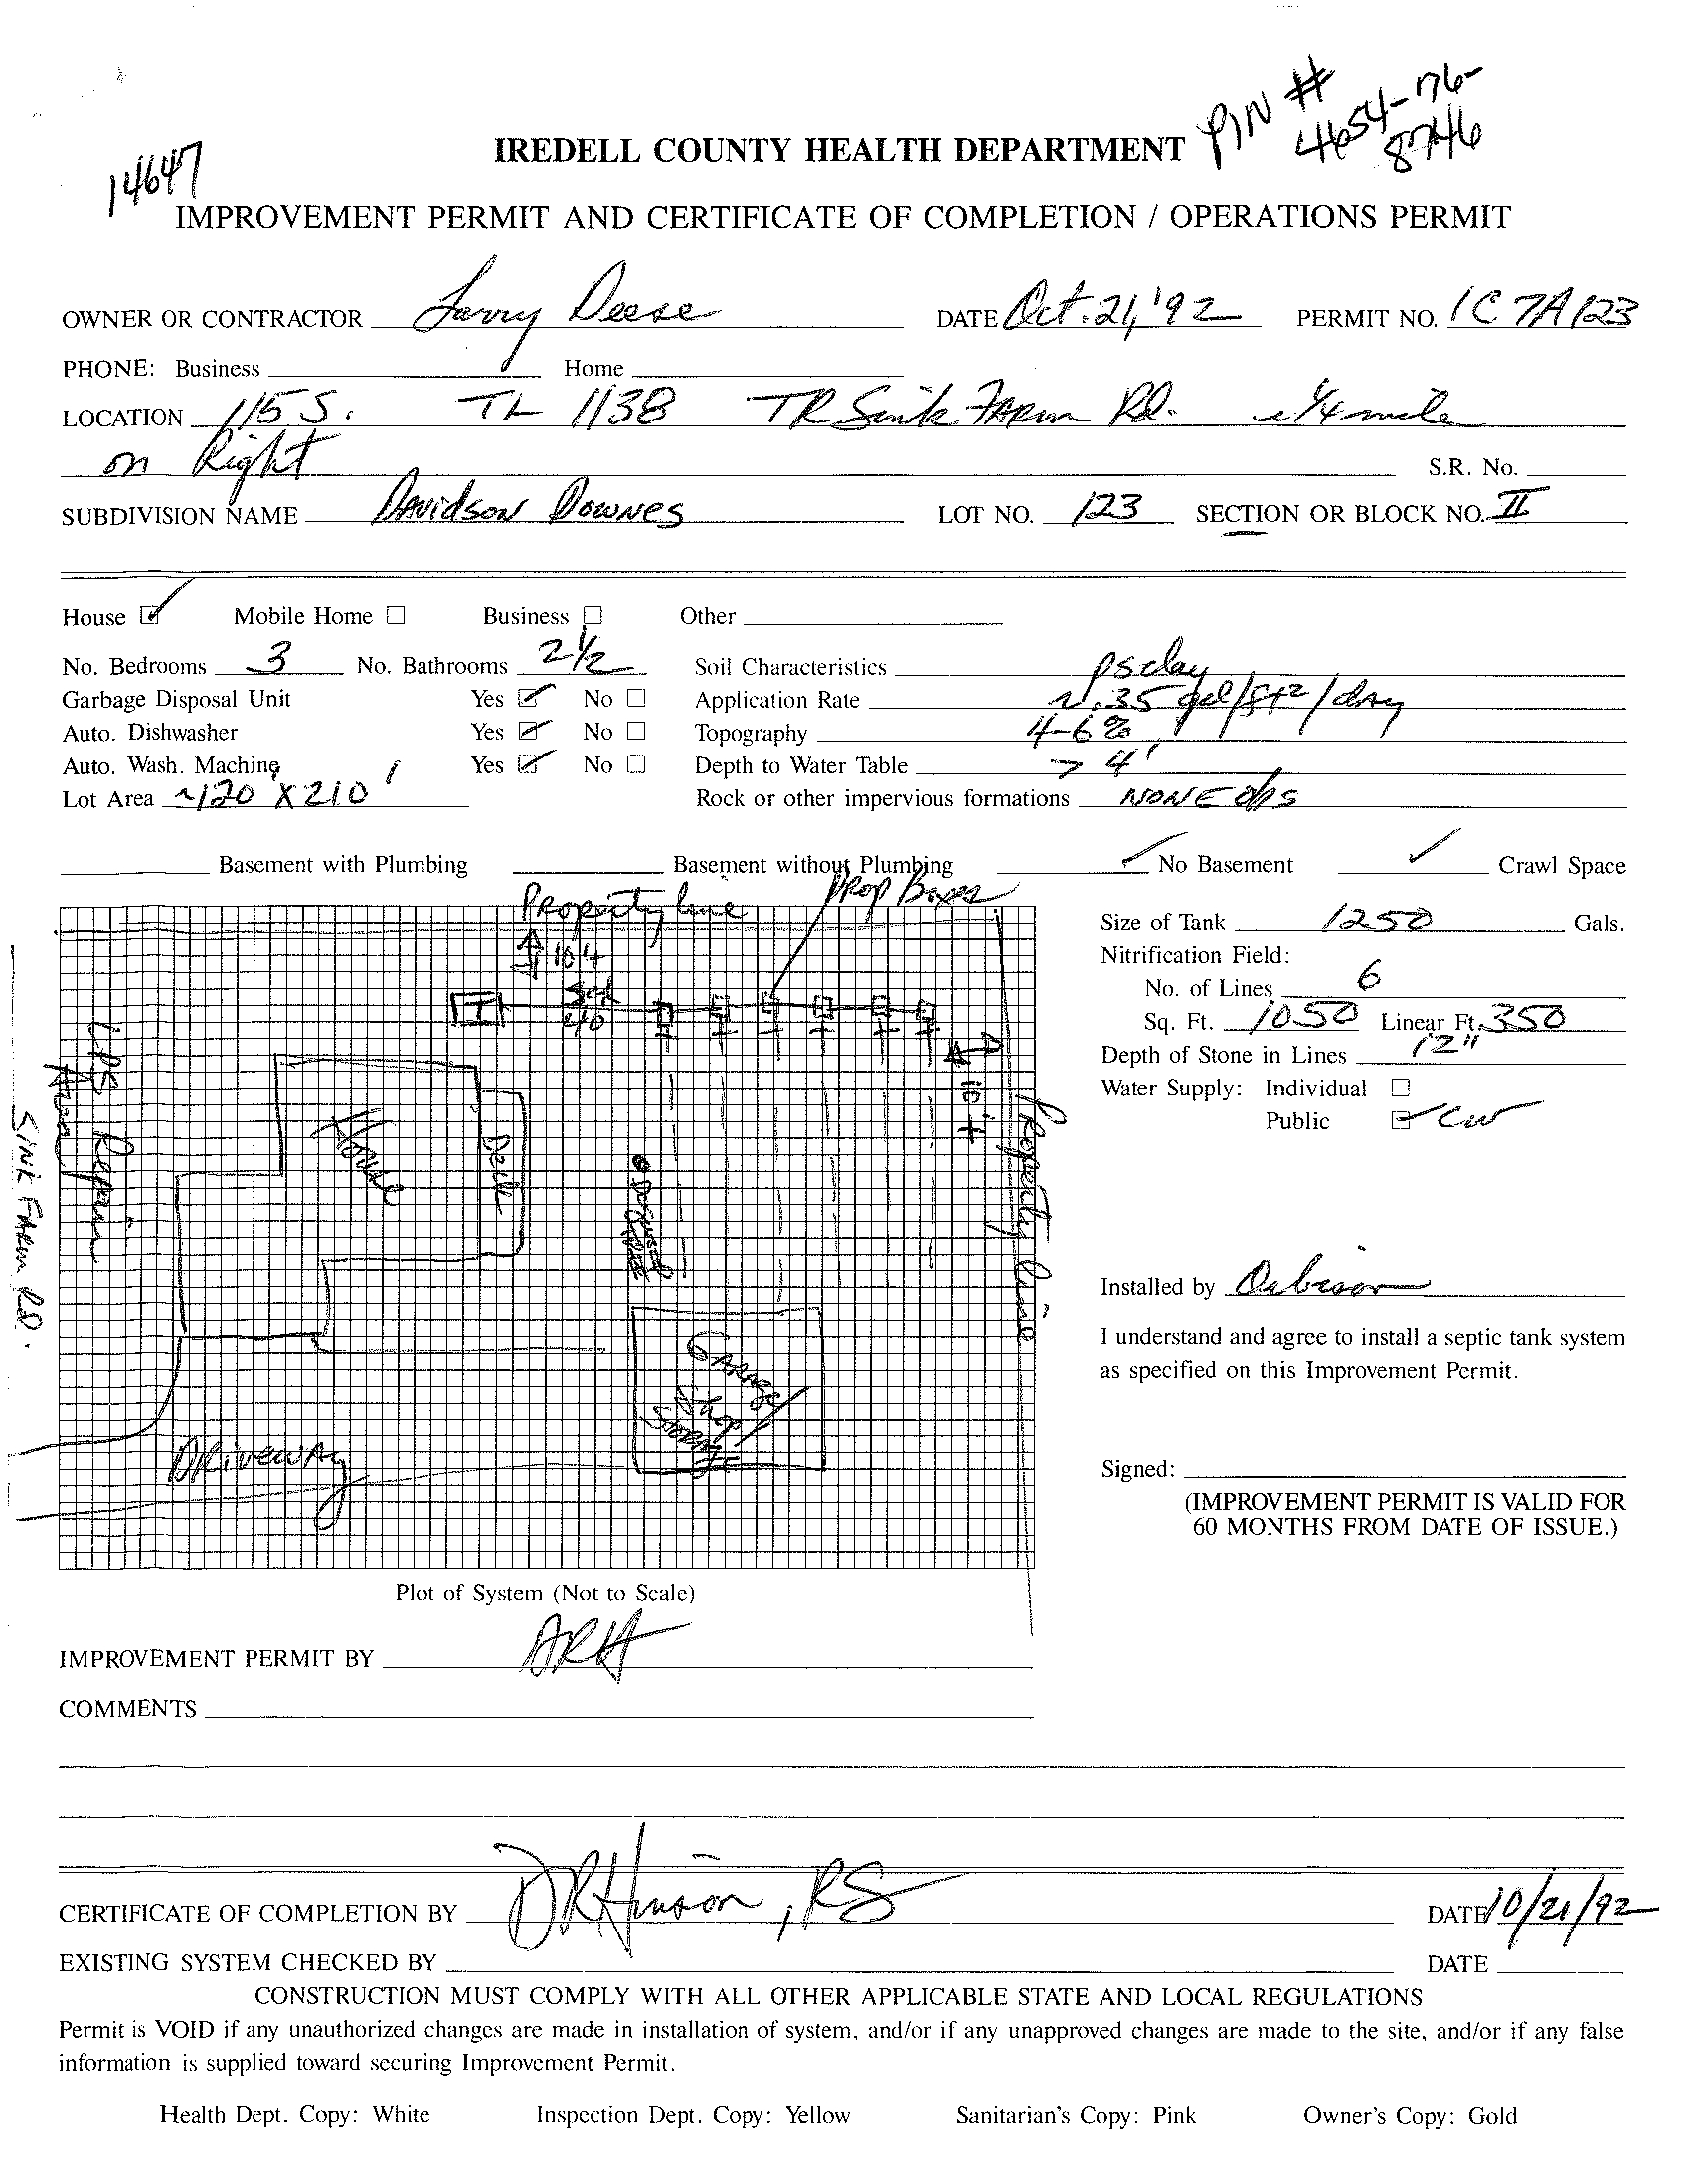 PIN #
4654-76-
8746
14647
IREDELL COUNTY HEALTH DEPARTMENT
IMPROVEMENT PERMIT AND CERTIFICATE OF COMPLETION / OPERATIONS PERMIT
OWNER OR CONTRACTOR Larry Deese DATE Oct. 21, '92 PERMIT NO. 1C7A123
PHONE: Business Home
LOCATION 115 S. TL 1138 TR Sink FARM Rd. ~1/4 mile
on Right S.R. No.
SUBDIVISION NAME DAVIDSON DOWNES LOT NO. 123 SECTION OR BLOCK NO. II
House Mobile Home Business Other
No. Bedrooms 3 No. Bathrooms 2 1/2 Soil Characteristics ps clay
Garbage Disposal Unit Yes No Application Rate ~.35 gal/ft²/day
Auto. Dishwasher Yes No Topography 4-6%
Auto. Wash. Machine Yes No Depth to Water Table > 4'
Lot Area ~120 X 210' Rock or other impervious formations NONE obs
Basement with Plumbing Basement without Plumbing No Basement Crawl Space
Property line
Drop Boxes
10 ft
Sch
40
House
Deck
LPS Repair
Area
SINK FARM RD.
10 ft
Property line
GARAGE/
Shop/
Storage
DRIVEWAY
Size of Tank 1250 Gals.
Nitrification Field:
No. of Lines 6
Sq. Ft. 1050 Linear Ft. 350
Depth of Stone in Lines 12"
Water Supply: Individual
Public CW
Installed by Orbison
I understand and agree to install a septic tank system
as specified on this Improvement Permit.
Signed:
(IMPROVEMENT PERMIT IS VALID FOR
60 MONTHS FROM DATE OF ISSUE.)
Plot of System (Not to Scale)
IMPROVEMENT PERMIT BY DRH
COMMENTS
CERTIFICATE OF COMPLETION BY DRHinson, RS DATE 10/21/92
EXISTING SYSTEM CHECKED BY DATE
CONSTRUCTION MUST COMPLY WITH ALL OTHER APPLICABLE STATE AND LOCAL REGULATIONS
Permit is VOID if any unauthorized changes are made in installation of system, and/or if any unapproved changes are made to the site, and/or if any false
information is supplied toward securing Improvement Permit.
Health Dept. Copy: White Inspection Dept. Copy: Yellow Sanitarian's Copy: Pink Owner's Copy: Gold